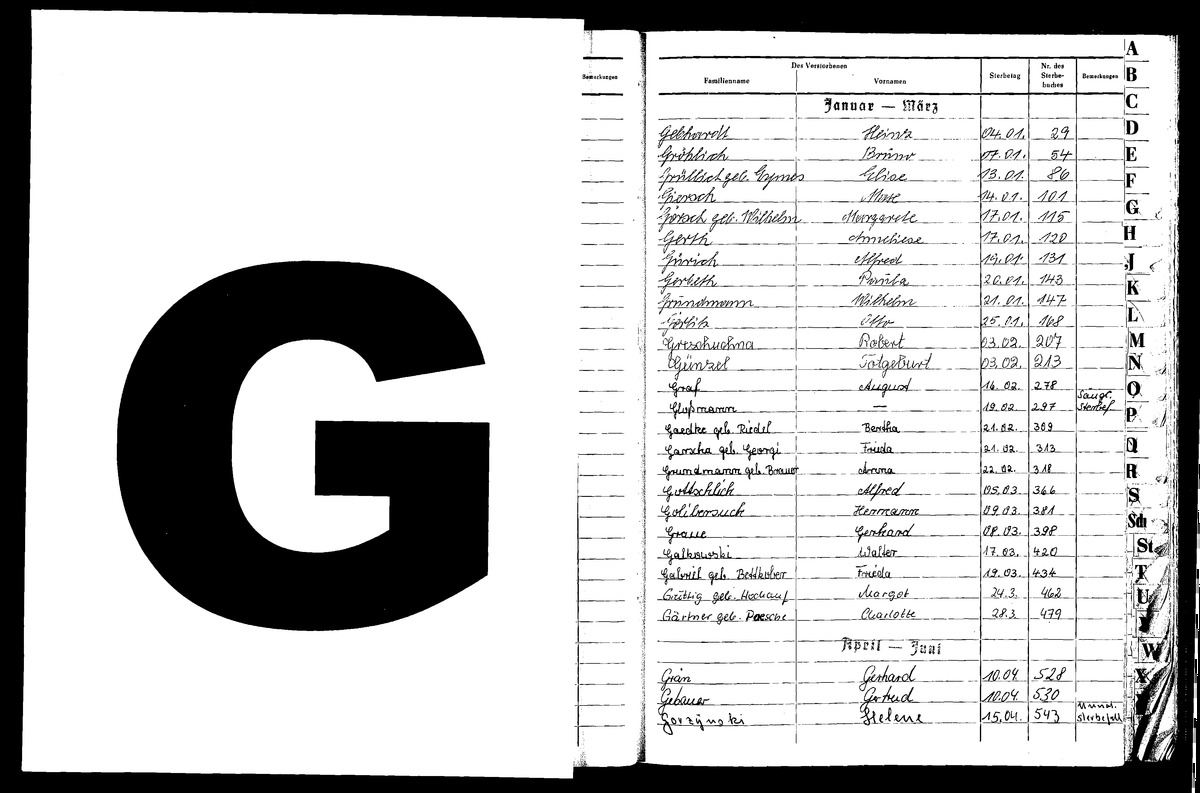 G
Bemerkungen
Des Verstorbenen
Familienname Vornamen Sterbetag Nr. des Sterbe-buches Bemerkungen
Januar — März
Gebhardt Heinz 04.01. 29
Gröhlich Bruno 07.01. 54
geb. Elise 13.01. 86
Giersch 14.01. 101
Görsch geb. Wilhelm Margarete 17.01. 115
Gerth Anneliese 17.01. 120
Jürich Alfred 19.01. 131
Paula 20.01. 143
Grundmann Wilhelm 21.01. 147
Görlitz Otto 25.01. 168
Greschuchna Robert 03.02. 207
Günzel Totgeburt 03.02. 213
Graf August 16.02. 278
Gloßmann — 19.02. 297 Säugl. Sterbef.
Gaedke geb. Riedel Bertha 21.02. 309
Garscha geb. Georgi Frieda 21.02. 313
Grundmann geb. Brauer Anna 22.02. 318
Gottschlich Alfred 05.03. 366
Golibersuch Hermann 09.03. 381
Graue Gerhard 08.03. 398
Galkowski Walter 17.03. 420
Gabriel geb. Bettkober Frieda 19.03. 434
Grüttig geb. Hochauf Margot 24.3. 462
Gärtner geb. Paesche Charlotte 28.3. 479
April — Juni
Grän Gerhard 10.04. 528
Gebauer Gertrud 10.04. 530
Gorzynski Helene 15.04. 543 sterbefall
A
B
C
D
E
F
G
H
J
K
L
M
N
O
P
Q
R
S
Sch
St
T
U
W
X